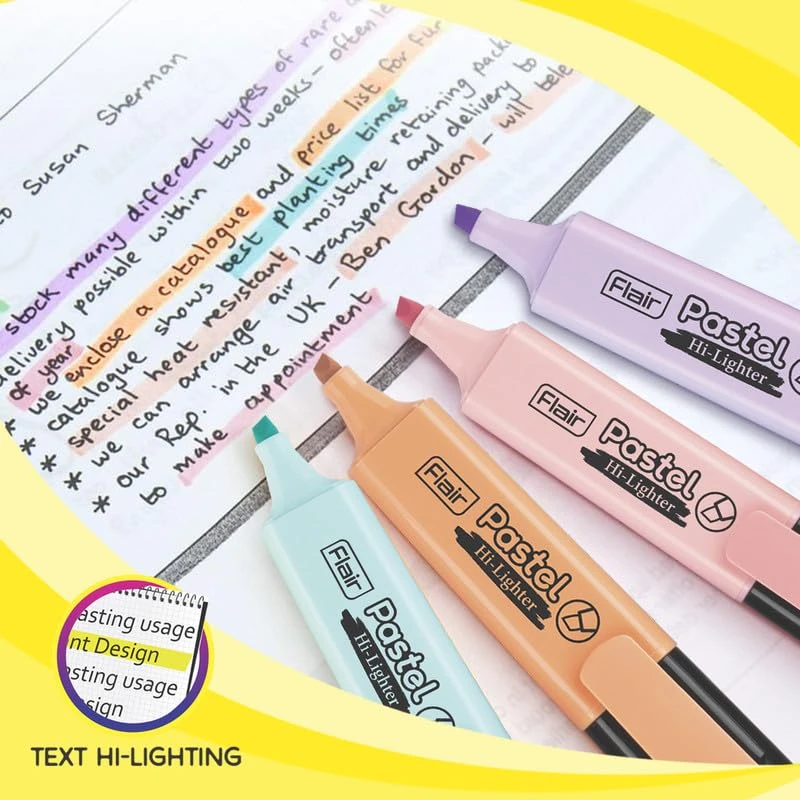 to Susan Sherman
stock many different types of rare
delivery possible within two weeks - often
of year
* we enclose a catalogue and price list for
* catalogue shows best planting times
special heat resistant, moisture retaining
* we can arrange air transport and delivery to
* our Rep. in the UK - Ben Gordon - will
to make appointment
Flair
Pastel
Hi-Lighter
Flair
Pastel
Hi-Lighter
Flair
Pastel
Hi-Lighter
Flair
Pastel
Hi-Lighter
asting usage
nt Design
asting usage
sign
TEXT HI-LIGHTING